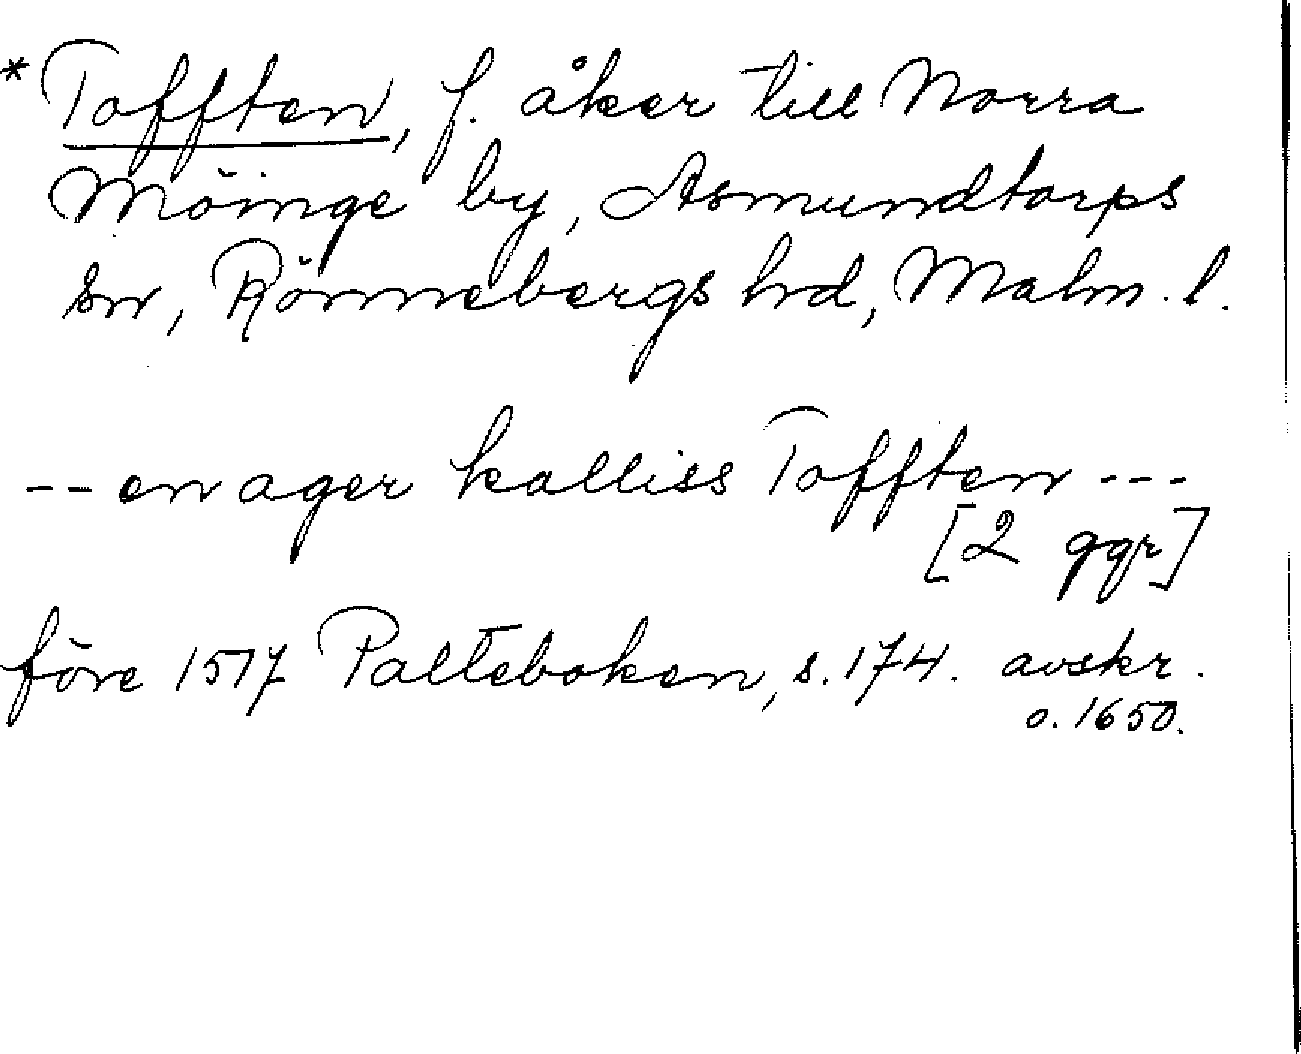 * Tofften, f. åker till Norra
Möinge by, Asmundtorps
sn, Rönnebergs hd, Malm. l.
-- en ager kalliss Tofften ---
[2 ggr]
före 1517 Palteboken, s. 174. avskr.
o. 1650.